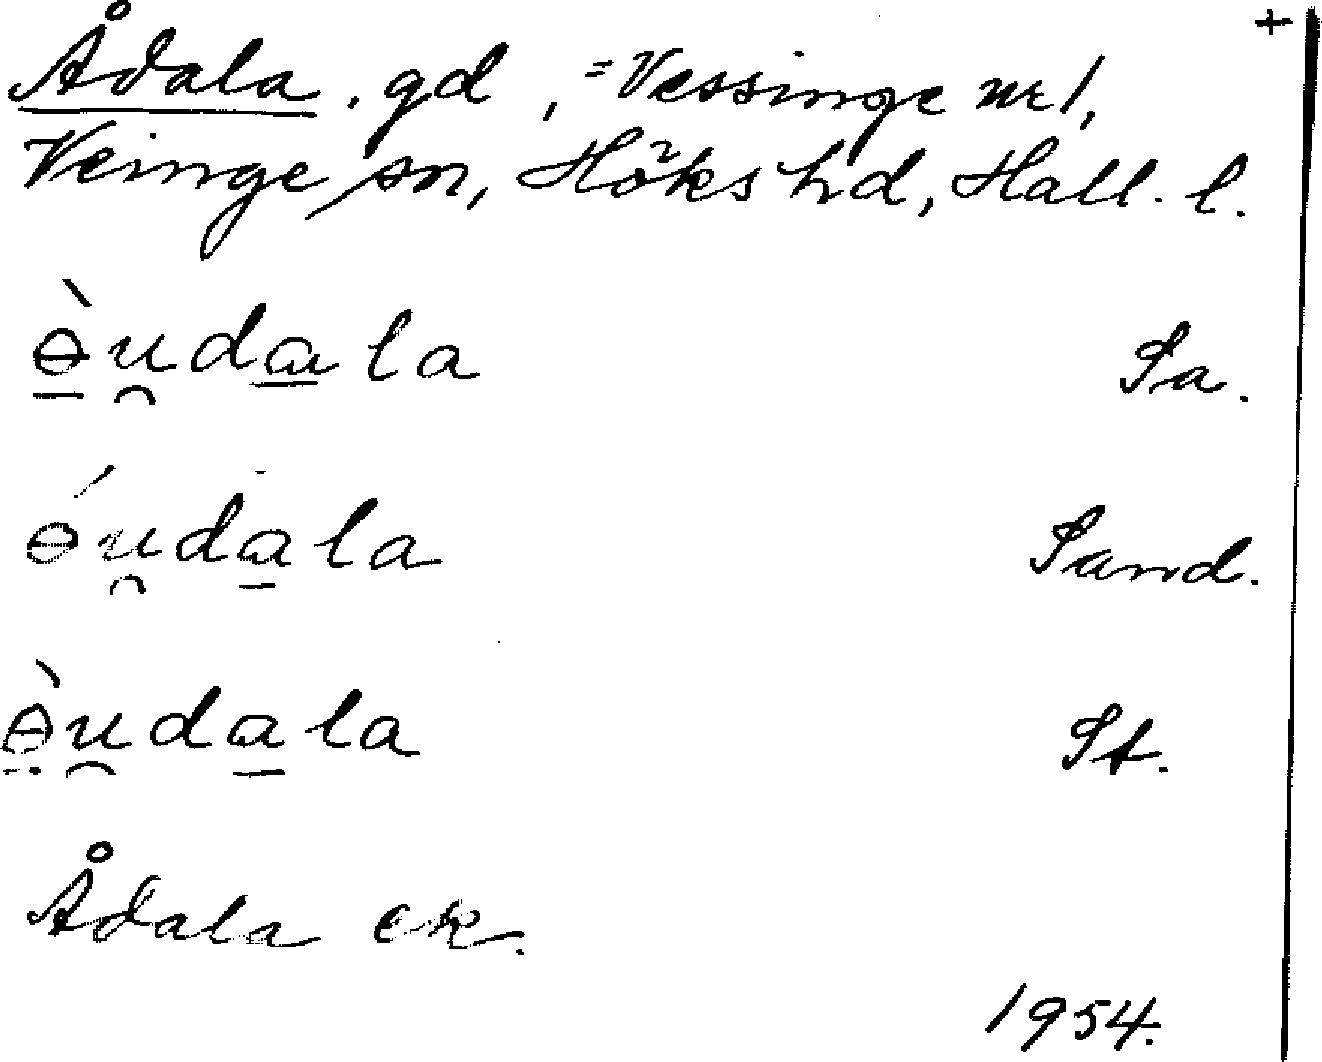 +
Ådala. gd, = Vessinge nr 1,
Veinge sn, Höks hd, Hall. l.
ɵ̲̀u̯da̲la Sa.
ɵ́u̯da̲la Sand.
ɵ̤̀u̯da̲la St.
Ådala ek.
1954.